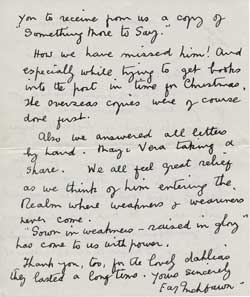 you to receive from us a copy of
"Something More to Say."
How we have missed him! And
especially while trying to get books
into the post in time for Christmas.
The overseas copies were of course
done first.
Also we answered all letters
by hand. Mary & Vera taking a
share. We all feel great relief
as we think of him entering the
Realm where weakness & weariness
never come.
"Sown in weakness - raised in glory"
has come to us with power.
Thank you, too, for the lovely dahlias
they lasted a long time. Yours sincerely